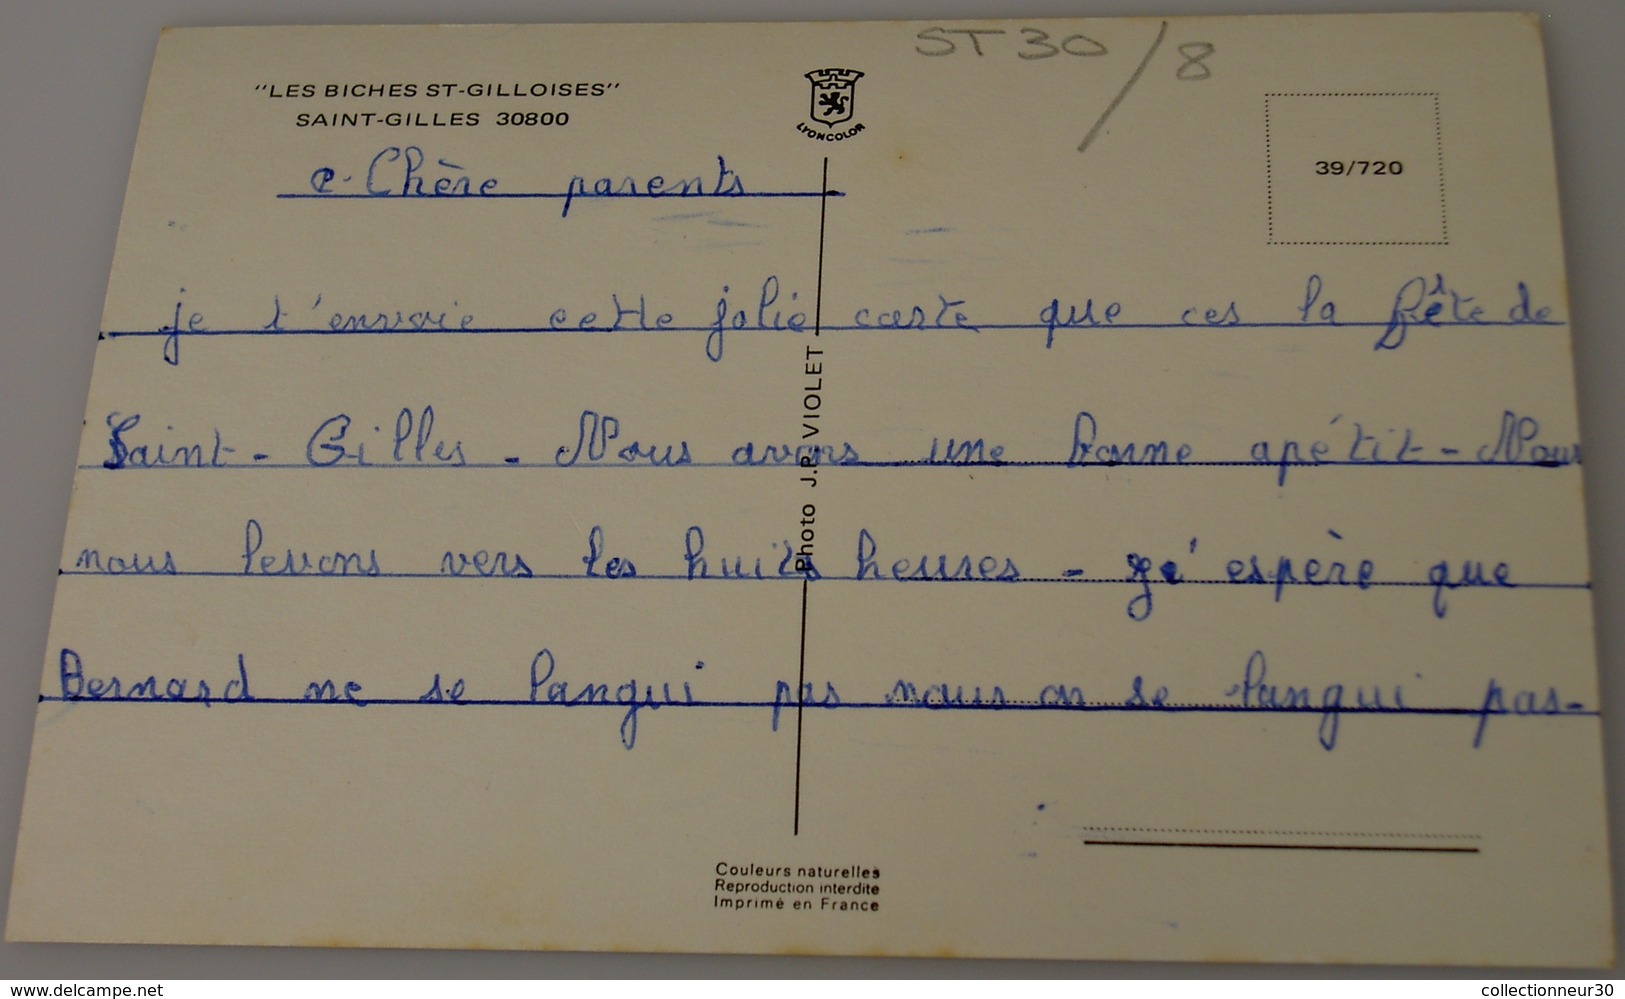 ST 30/8
"LES BICHES ST-GILLOISES"
SAINT-GILLES 30800
LYONCOLOR
39/720
Chère parents
je t'envoie cette jolie carte que ces la fête de
Saint-Gilles - Nous avons une bonne apétit - Nous
nous levons vers les huits heures - j'espère que
Bernard ne se langui pas nous on se langui pas-
Photo J.P. VIOLET
Couleurs naturelles
Reproduction interdite
Imprimé en France
www.delcampe.net
collectionneur30